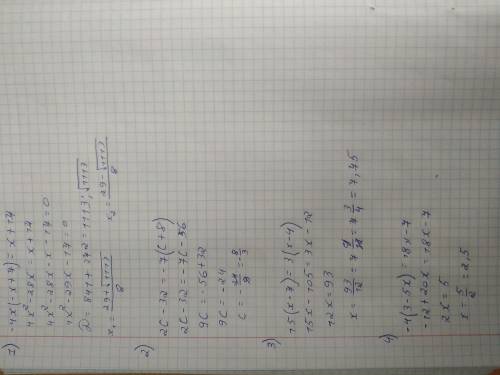 1)
-4x(-x+7)=x+17
4x²-28x=x+17
4x²-28x-x-17=0
4x²-29x-17=0
D=841+272=1113; √1113
x₁=(29+√1113)/8 x₂=(29-√1113)/8
2)
2C-32=-7(C+8)
2C-32=-7C-56
9C=-56+32
9C=-24
C=-24/9=-8/3
3)
15(x-7)=3(x-4)
15x-105=3x-12
12x=93
x=93/12=7 9/12=7 3/4=7,75
4)
-4(3-5x)=18x-7
-12+20x=18x-7
2x=5
x=5/2=2,5